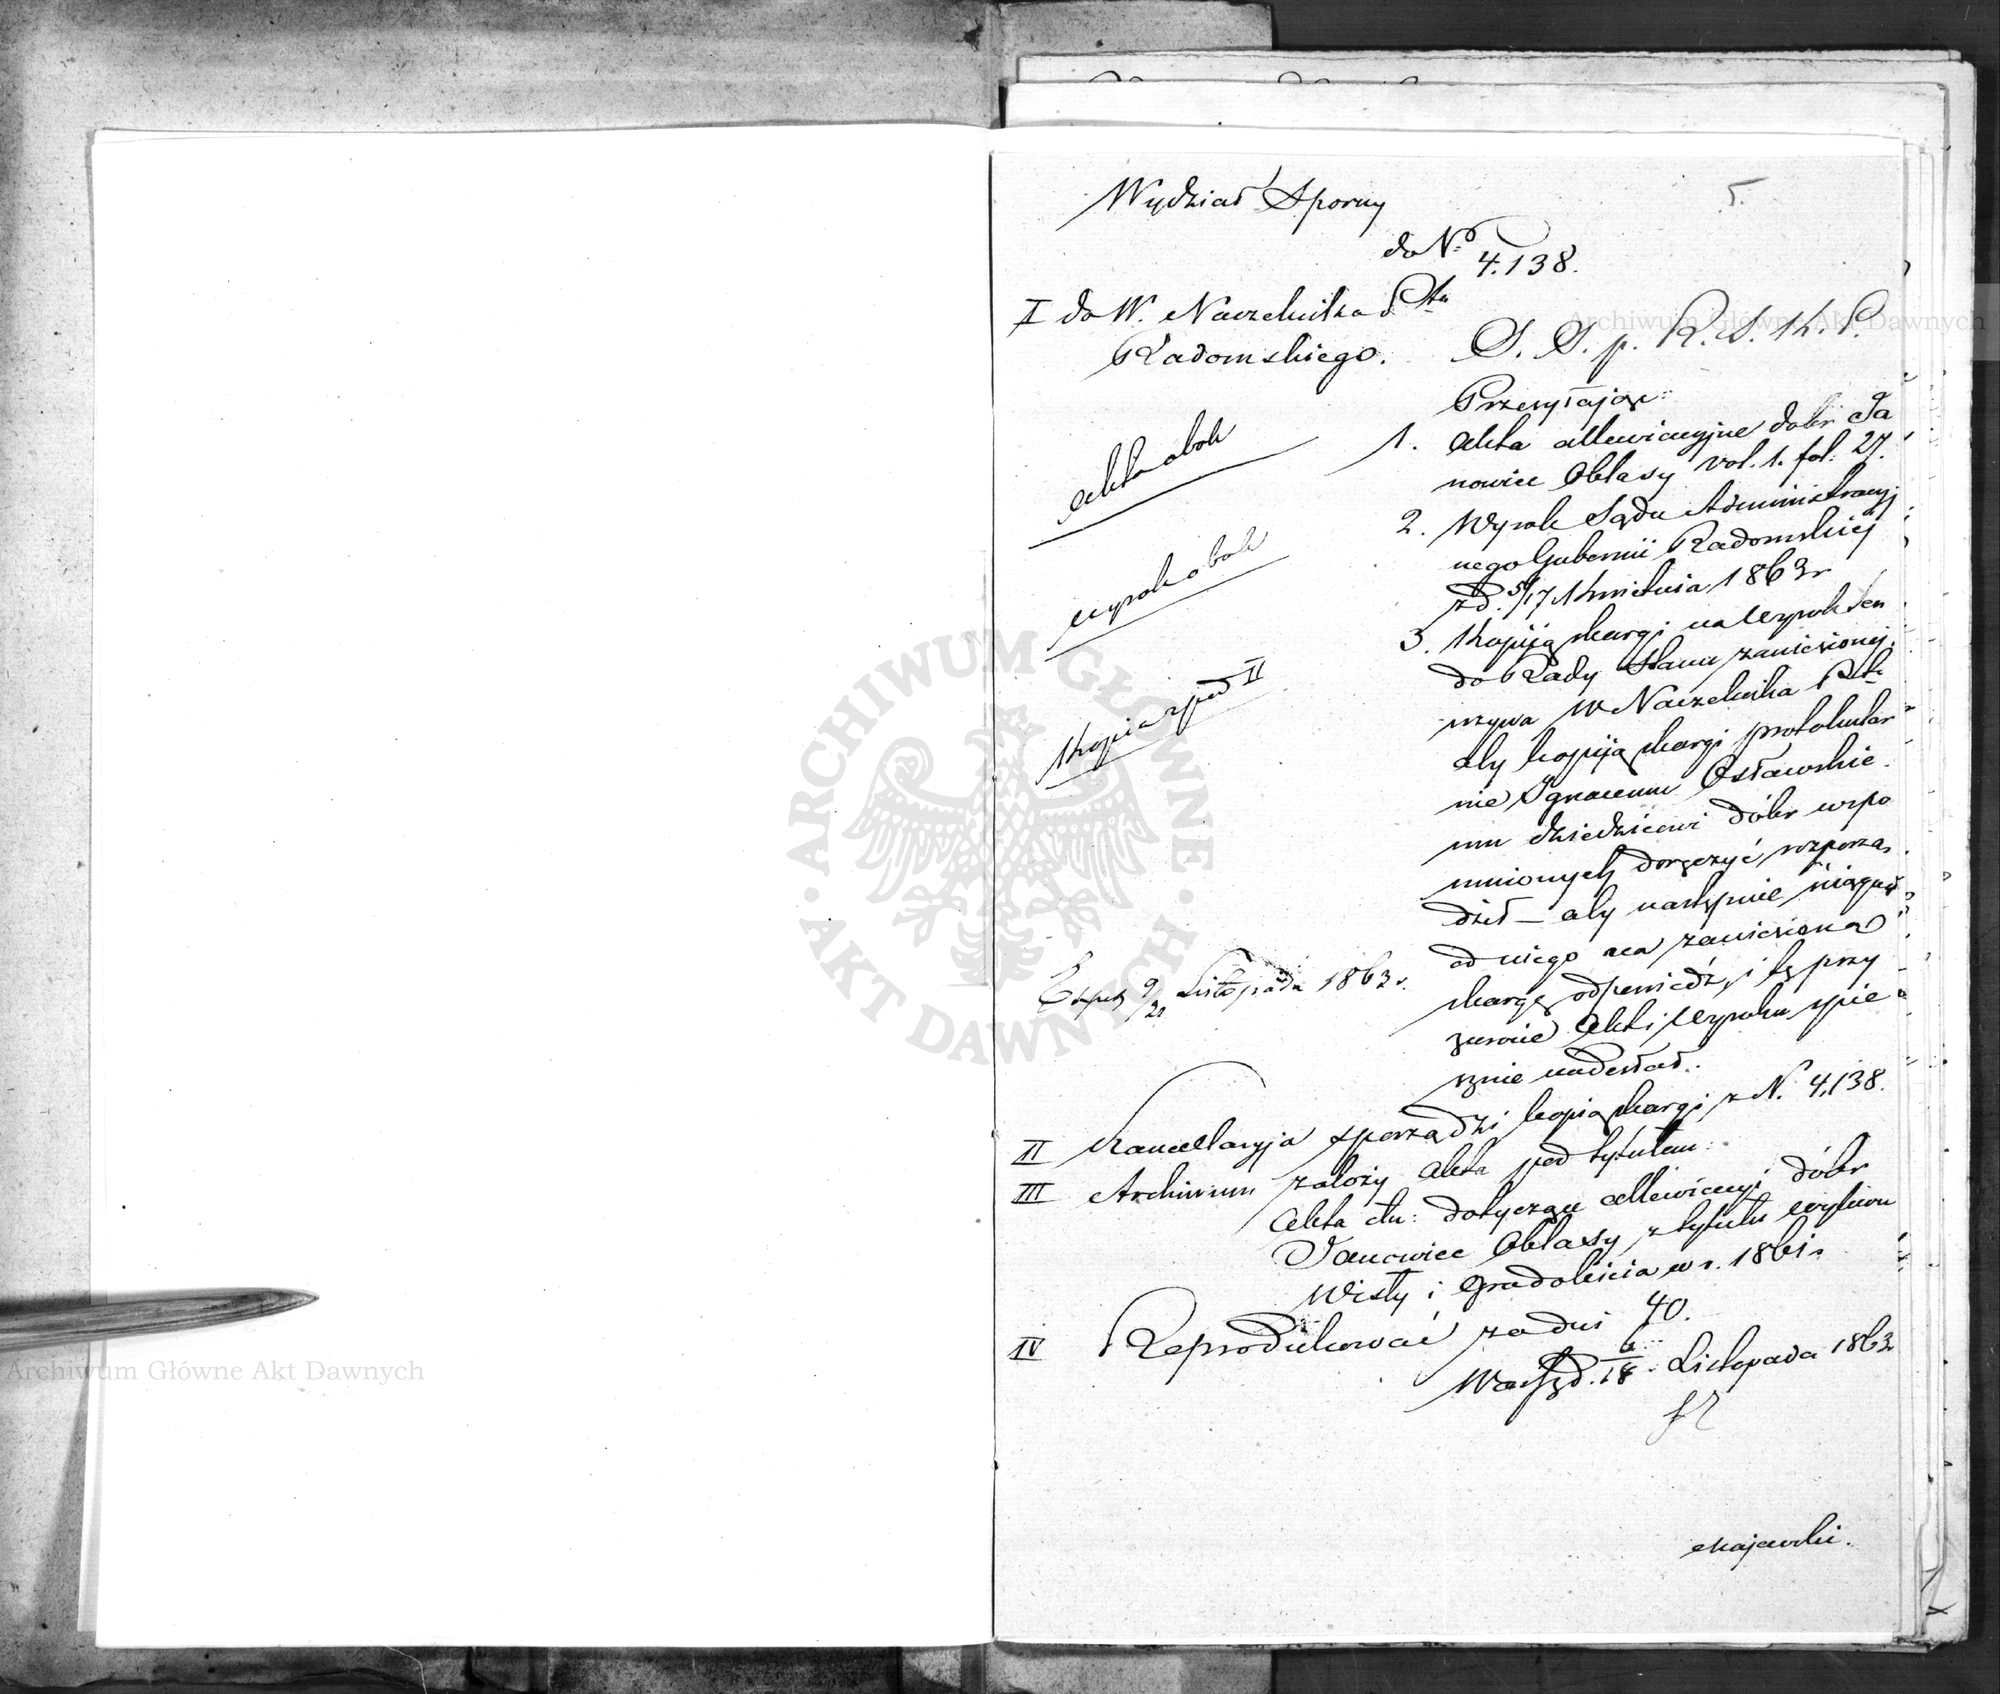 5.
Wydział Sporny
do N.o 4.138.
I do W. Naczelnika Ptu
Radomskiego.
S. S. p. R. S. K. P.
Przesyłając:
Akta obok
1. Akta allewiacyjne dobr Ja
nowice Oblasy vol. 1. fol: 27.
wyrok obok
2. Wyrok Sądu Administracyj
nego Gubernii Radomskiej
z d. 5/17 Kwietnia 1863 r
Kopia z pod II
3. Kopiją skargi na wyrok ten
do Rady Stanu zaniesionej,
wzywa W Naczelnika Ptu
aby kopiją skargi protokular
nie Ignacemu Osławskie
mu dziedzicowi dóbr wspo
mnionych doręczyć rozporzą
dził – aby następnie ściągnął
od niego na zaniesioną
skargę odpowiedź, i tę przy
zwrocie Akt i Wyroku spie
sznie nadesłał.
Exped 9/21 Listopada 1863 r.
II Kancellaryja sporządzi kopią skargi z N. 4,138.
III Archiwum założy Akta pod tytułem:
Akta dotyczące allewiacyi dóbr
Janowice Oblasy, z tytułu wylewu
Wisły i gradobicia w r. 1861.
IV Reprodukować za dni 40.
Warsz d. 6/18 Listopada 1863
Majewski.
Archiwum Główne Akt Dawnych
Archiwum Główne Akt Dawnych
ARCHIWUM GŁÓWNE
AKT DAWNYCH